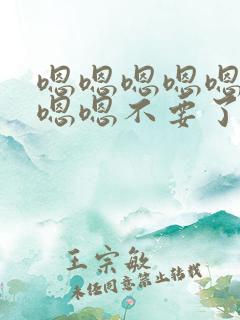 嗯嗯嗯嗯嗯
嗯嗯不要了
王宗敏
未经同意禁止转载